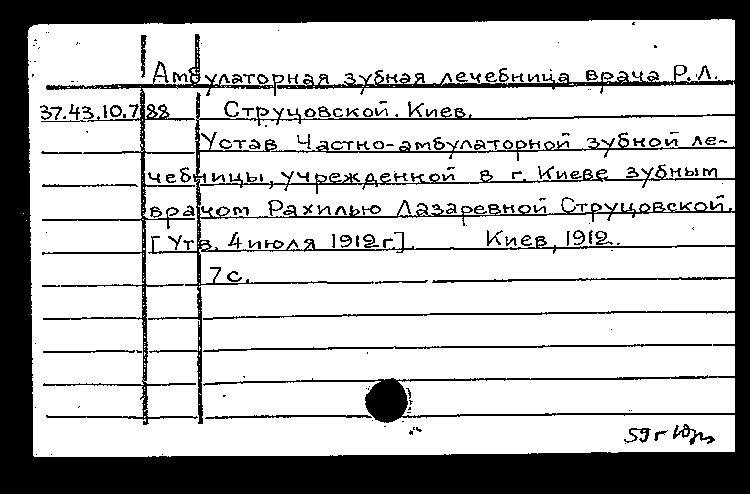 Амбулаторная зубная лечебница врача Р.Л.
37.43.10.788 Струцовской. Киев.
Устав Частно-амбулаторной зубной ле-
чебницы, учрежденной в г. Киеве зубным
врачом Рахилью Лазаревной Струцовской.
[Утв. 4 июля 1912г]. Киев, 1912.
7 с.
59 г